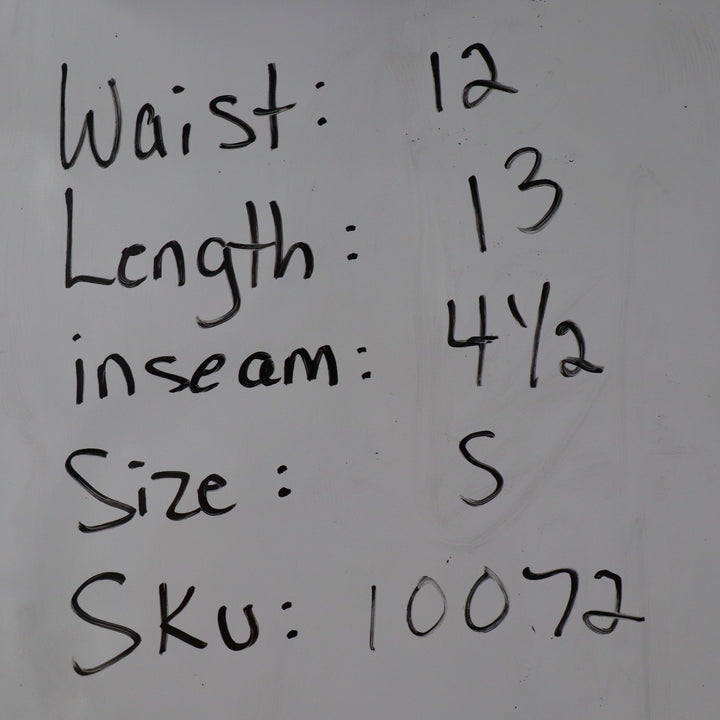 Waist: 12
Length: 13
inseam: 4 1/2
Size: S
SKU: 10072